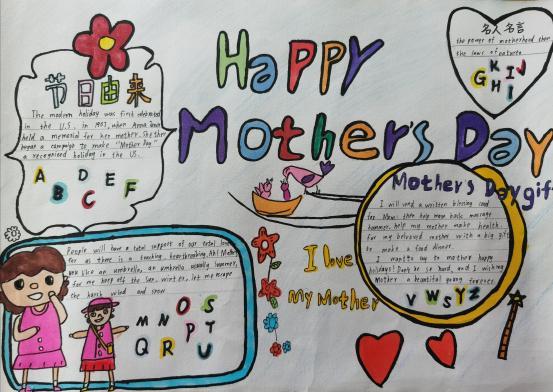 HAPPY
Mother's Day
节日由来
The modern holiday was first celebrated
in the U.S. in 1907, when Anna
held a memorial for her mother. She then
began a campaign to make "Mother Day"
a recognized holiday in the US.
A B C D E F
名人名言
the power of motherhood than
the laws of nature
G K I J
H I
Mother's Day gift
I will send a written blessing card
for Mom. then help mom basic massage
hammer, help my mother make health
for my beloved mother with a big gift
to make a food dinner.
I want to say to mother happy
holidays! Don't be so hard, and I wish
Mother a beautiful young forever
V W S Y Z
People will have a total support of our total
for as there is a touching, heartbreaking, Ah! Mother
you like an umbrella, an umbrella usually summer,
for me keep off the sun. winter, let me escape
the harsh wind and snow
M N O S
Q R P T
U
I love
my Mother